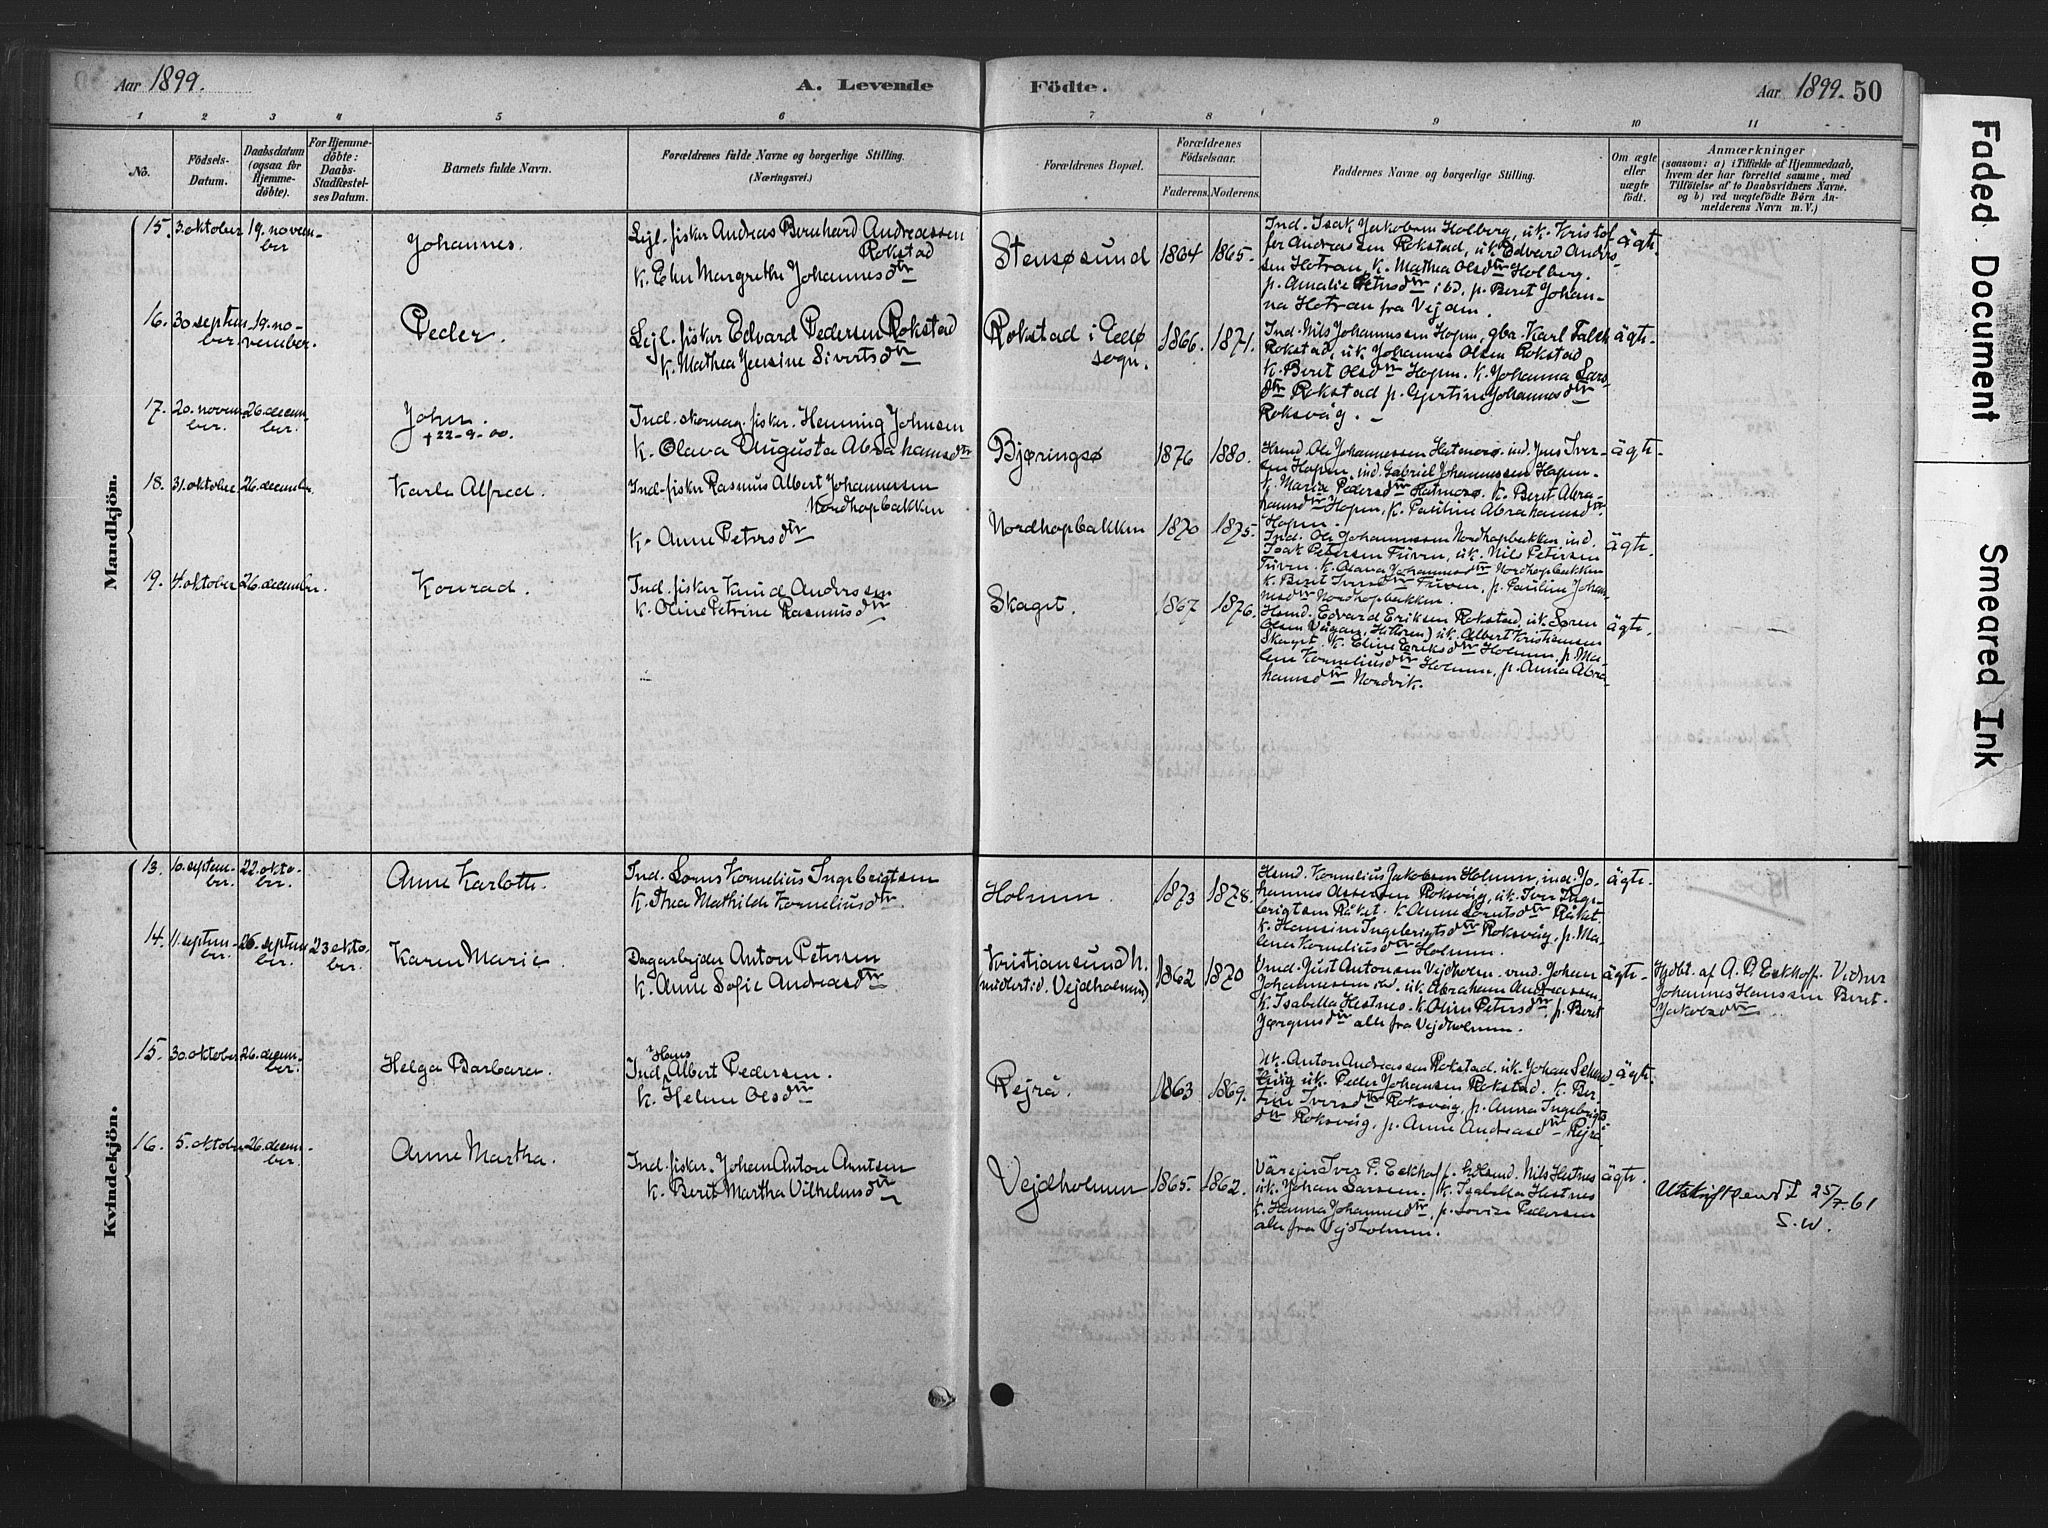 Aar 1899.
A. Levende
Födte.
Aar 1899. 50
1 2 3 4 5 6 7 8 9 10 11
No.
Födsels-
Datum.
Daabsdatum
(ogsaa for
Hjemme-
döbte).
For Hjemme-
döbte:
Daabs-
Stadfæstel-
ses Datum.
Barnets fulde Navn.
Forældrenes fulde Navne og borgerlige Stilling.
(Næringsvei.)
Forældrenes Bopæl.
Forældrenes
Födselsaar.
Faderens. Moderens.
Faddernes Navne og borgerlige Stilling.
Om ægte
eller
uægte
födt.
Anmærkninger
(saasom: a) i Tilfælde af Hjemmedaab,
hvem der har forrettet samme, med
Tilföielse af to Daabsvidners Navne.
og b) ved uægtefödte Börn An-
melderens Navn m. V.)
Mandkjön.
15. 3. oktober 19. novem-
ber
Johannes.
Lejl. fisker Andreas Bernhard Andreassen
Rokstad
K. Elen Margrethe Johannesdtr
Stensøsund 1864 1865.
Ind. Isak Jakobsen Holberg, uk. Kristof-
fer Andreassen Rokstad, uk. Edvard Anders-
sen Hotran, k. Mathea Olsdtr Holberg.
p. Amalie Petersdtr ibd, p. Beret Johan-
na Hotran fra Vejden.
ägte.
16. 30 septem-
ber. 19. no-
vember.
Peder.
Lejl. fisker Edvard Pedersen Rokstad
K. Mathea Jensine Sivertsdtr
Rokstad i Edø
sogn. 1866. 1871.
Ind. Nils Johannessen Hopen, gbr. Karl Falch
Rokstad, uk. Johannes Olsen Rokstad
K. Beret Olsdtr Hopen. K. Johanna Lars-
dtr Rokstad p. Gjertine Johannesdtr
Roksvåg.
ägte.
17. 20. novem-
ber. 26 decem-
ber.
John.
+ 22-9-00.
Ind. skomag. fisker. Henning Johnsen
K. Olava Augusta Abrahamsdtr
Bjøringsø 1876 1880.
Hsmd. Ole Johannessen Hatmosø. ind. Jens Iver-
sen Hopen, ind. Gabriel Johannessen Hopen.
K. Marie Pedersdtr Hatmosø. K. Beret Abra-
hamsdtr Hopen, K. Pauline Abrahamsdtr
Hopen.
ägte.
18. 31. oktober 26. december.
Karle Alfred.
Ind. fisker Rasmus Albert Johannessen
Nordhopbakken
K. Anne Petersdtr
Nordhopbakken 1870 1875.
Ind. Ole Johannessen Nordhopbakken ind.
Isak Petersen Tuven, uk. Nils Petersen
Tuven. K. Olava Johannesdtr Nordhopbakken
K. Beret Iversdtr Tuven, p. Pauline Johan-
nesdtr Nordhopbakken.
ägte.
19. 4. oktober 26. december.
Konrad.
Ind. fisker Knud Anderssen
K. Oline Petrine Rasmusdtr
Skaget. 1867 1876.
Hsmd. Edvard Eriksen Rokstad, uk. Søren
Olsen Vågan, Hitteren) uk. Albert Kristiansen
Skaget. K. Eline Eriksdtr Holmen, p. Ma-
lene Korneliusdtr Holmen, p. Anna Abra-
hamsdtr Nordvik.
ägte.
Kvindekjön.
13. 10. septem-
ber. 22. okto-
ber.
Anne Karlotte.
Ind. Lorns Kornelius Ingebrigtsen
K. Thea Mathilde Korneliusdtr.
Holmen. 1873 1878.
Hsmd. Kornelius Jakobsen Holmen, ind. Jo-
hannes Assersen Roksvåg, uk. Iver Inge-
brigtsen Råket. K. Anne Lorntsdtr Råket.
K. Hansine Ingebrigtsdtr Roksvåg, p. Ma-
lene Korneliusdtr Holmen.
ägte.
14. 11. septem-
ber. 26. septem-
ber. 23 okto-
ber.
Karen Marie.
Dagarbejder Anton Petersen
K. Anne Sofie Andreasdtr
Kristiansund N.
midlertid. Vejdholmen) 1862 1870
Und. Just Antonsen Vejdholm. vmd. Johan
Johannessen ibd. uk. Abraham Andreassen,
K. Isabella Hestnes. K. Oline Petersdtr, p. Beret
Jørgensdtr alle fra Vejdholmen.
ägte.
Hjdbt. af A. P. Eckhoff. Vidner
Johannes Hanssen Beret
Jakobsdtr
15. 30. oktober 26. decem-
ber.
Helga Barbara.
Hans
Ind. Albert Pedersen.
K. Helene Olsdtr
Rejrå. 1863 1869.
Uk. Anton Andreassen Rokstad. uk. Johan
uk. Peder Johansen Rokstad. K. Ber-
tine Iversdtr Roksvåg, p. Anna Ingebrigts-
dtr Roksvåg, p. Anne Andreasdtr Rejrå
ägte.
16. 5. oktober 26. decem-
ber.
Anne Martha.
Ind. fisker. Johan Anton Arntsen
K. Berit Martha Vilhelmsdtr
Vejdholmen 1865. 1862.
Værejer Iver P. Eckhoff. Nils Hestnes
uk. Johan Larsen. K. Isabella Hestnes
K. Hanna Johannesdtr, p. Lovise Pedersen
alle fra Vejdholmen.
ägte.
Utskrift sendt 25/7. 61
S.W.
Faded Document
Smeared Ink